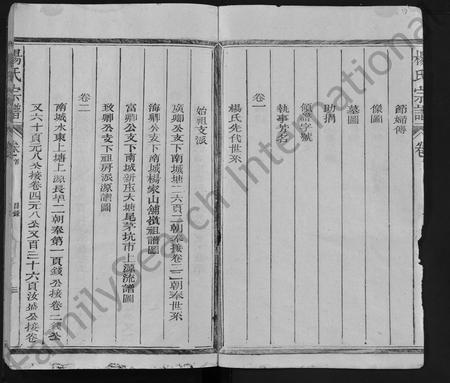 楊氏宗譜
卷
節婦傳
像圖
墓圖
助捐
領譜字號
執事芳名
卷一
楊氏先代世系
始祖支派
廣卿公支下南城塘二六頁二朝奉接卷二三朝奉世系
海卿公支下南城楊家山舖償祖譜圖
富卿公支下南城新庄大塘尾茅坑市上源流譜圖
致卿公支下祖房派源譜圖
卷二
南城水東上塘上源長早二朝奉第一頁錢公接卷二
又六十頁元八公接卷四元八公又百三十六頁汝城公接卷
楊氏宗譜
卷首
目錄
三
FamilySearch International